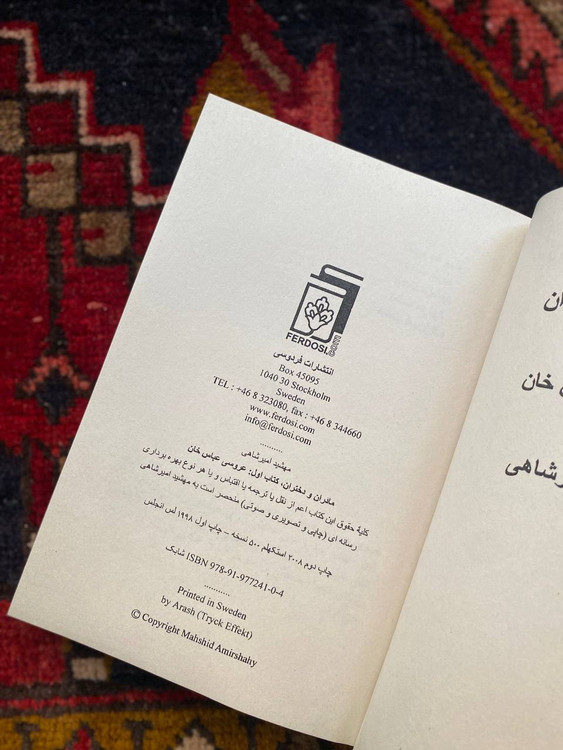 FERDOSI.com
انتشارات فردوسی
Box 45095
1040 30 Stockholm
Sweden
TEL : +46 8 323080, fax : +46 8 344660
www.ferdosi.com
info@ferdosi.com
..........
مهشید امیرشاهی
مادران و دختران، کتاب اول: عروسی عباس خان
کلیهٔ حقوق این کتاب اعم از نقل یا ترجمه یا اقتباس و یا هر نوع بهره برداری
رسانه ای (چاپی و تصویری و صوتی) منحصر است به مهشید امیرشاهی
چاپ دوم ۲۰۰۸ استکهلم ۵۰۰ نسخه – چاپ اول ۱۹۹۸ لس انجلس
شابک ISBN 978-91-977241-0-4
..........
Printed in Sweden
by Arash (Tryck Effekt)
© Copyright Mahshid Amirshahy
خان